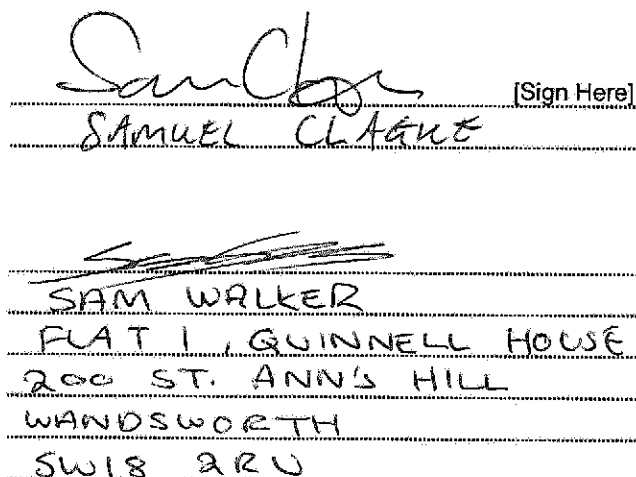 Sam Clague [Sign Here]
SAMUEL CLAGUE
SAM WALKER
FLAT 1, QUINNELL HOUSE
200 ST. ANN'S HILL
WANDSWORTH
SW18 2RU